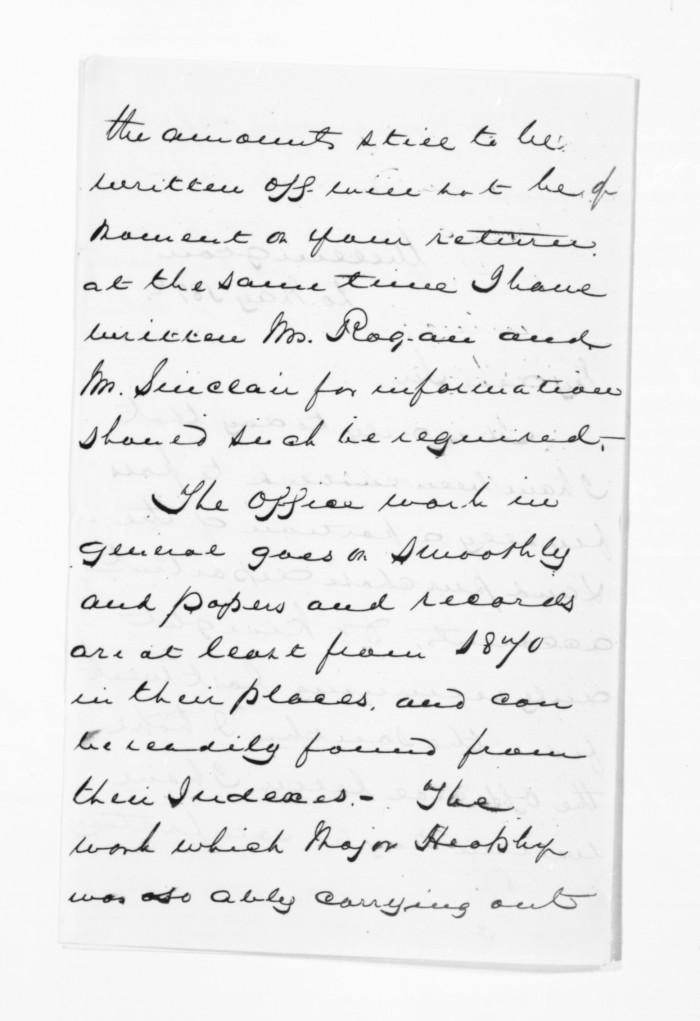 the amounts still to be
written off will not be of
moment on your return.
at the same time I have
written Mr. Rogan and
Mr. Sinclair for information
should such be required.-
The Office work in
general goes on smoothly
and papers and records
are at least from 1870
in their places, and can
be readily found from
their Indexes.- The
work which Major Heaphy
was so ably carrying out